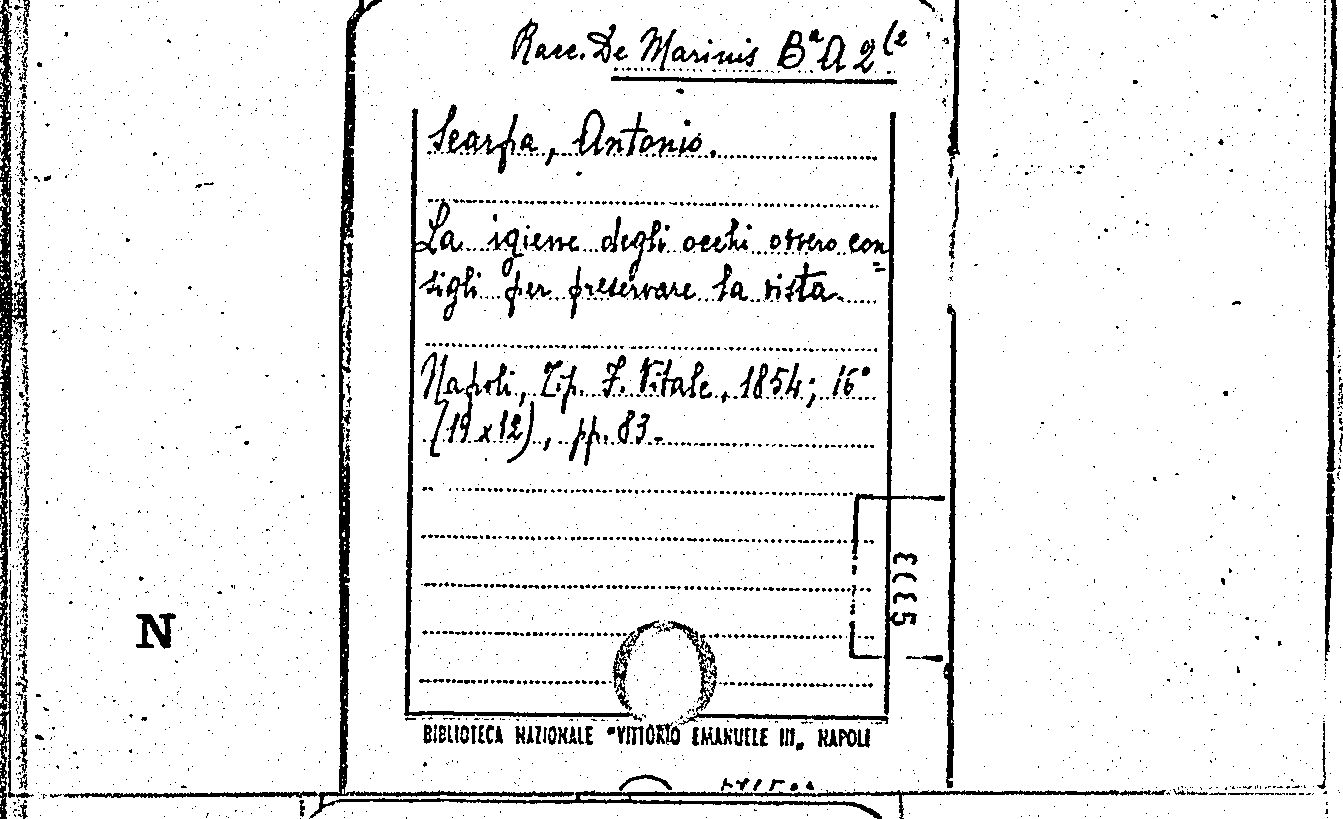 Racc. De Marinis Bª A 2(2
Scarpa, Antonio.
La igiene degli occhi ossero con=
sigli per preservare la vista.
Napoli, Tip. F. Vitale, 1854; 16°
(19 x 12), pp. 83.
N
BIBLIOTECA NAZIONALE "VITTORIO EMANUELE III„ NAPOLI